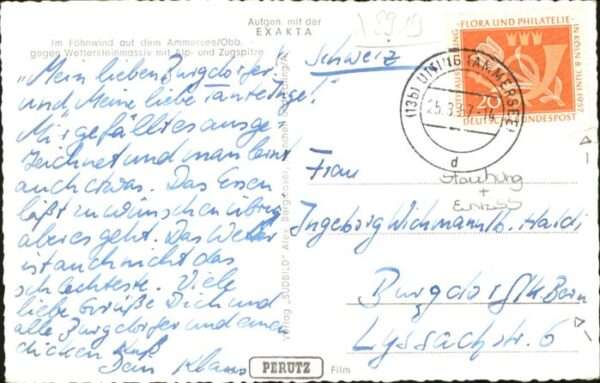 Aufgen. mit der
EXAKTA
Im Föhnwind auf dem Ammersee/Obb.
gegen Wettersteinmassiv mit Alp- und Zugspitze
"Mein lieben Burgdorfer
und Meine liebe Tante Inge!
Mir gefällt es ausge
zeichnet und man lernt
auch etwas. Das Essen
läßt zu wünschen übrig
aber es geht. Das Wetter
ist auch nicht das
schlechteste. Viele
liebe Grüße Dich und
alle Burgdorfer und einen
dicken Kuß
Dein Klaus
Verlag "SÜDBILD" Alex
PERUTZ
Film
Schweiz
FLORA UND PHILATELIE
20
DEUTSCHE BUNDESPOST
(13b) UTTING (AMMERSEE)
25.9.57
d
Frau
+
Ingeborg Wichmann b. Haidi
Burgdorf/Kt. Bern
Lyssachstr. 6